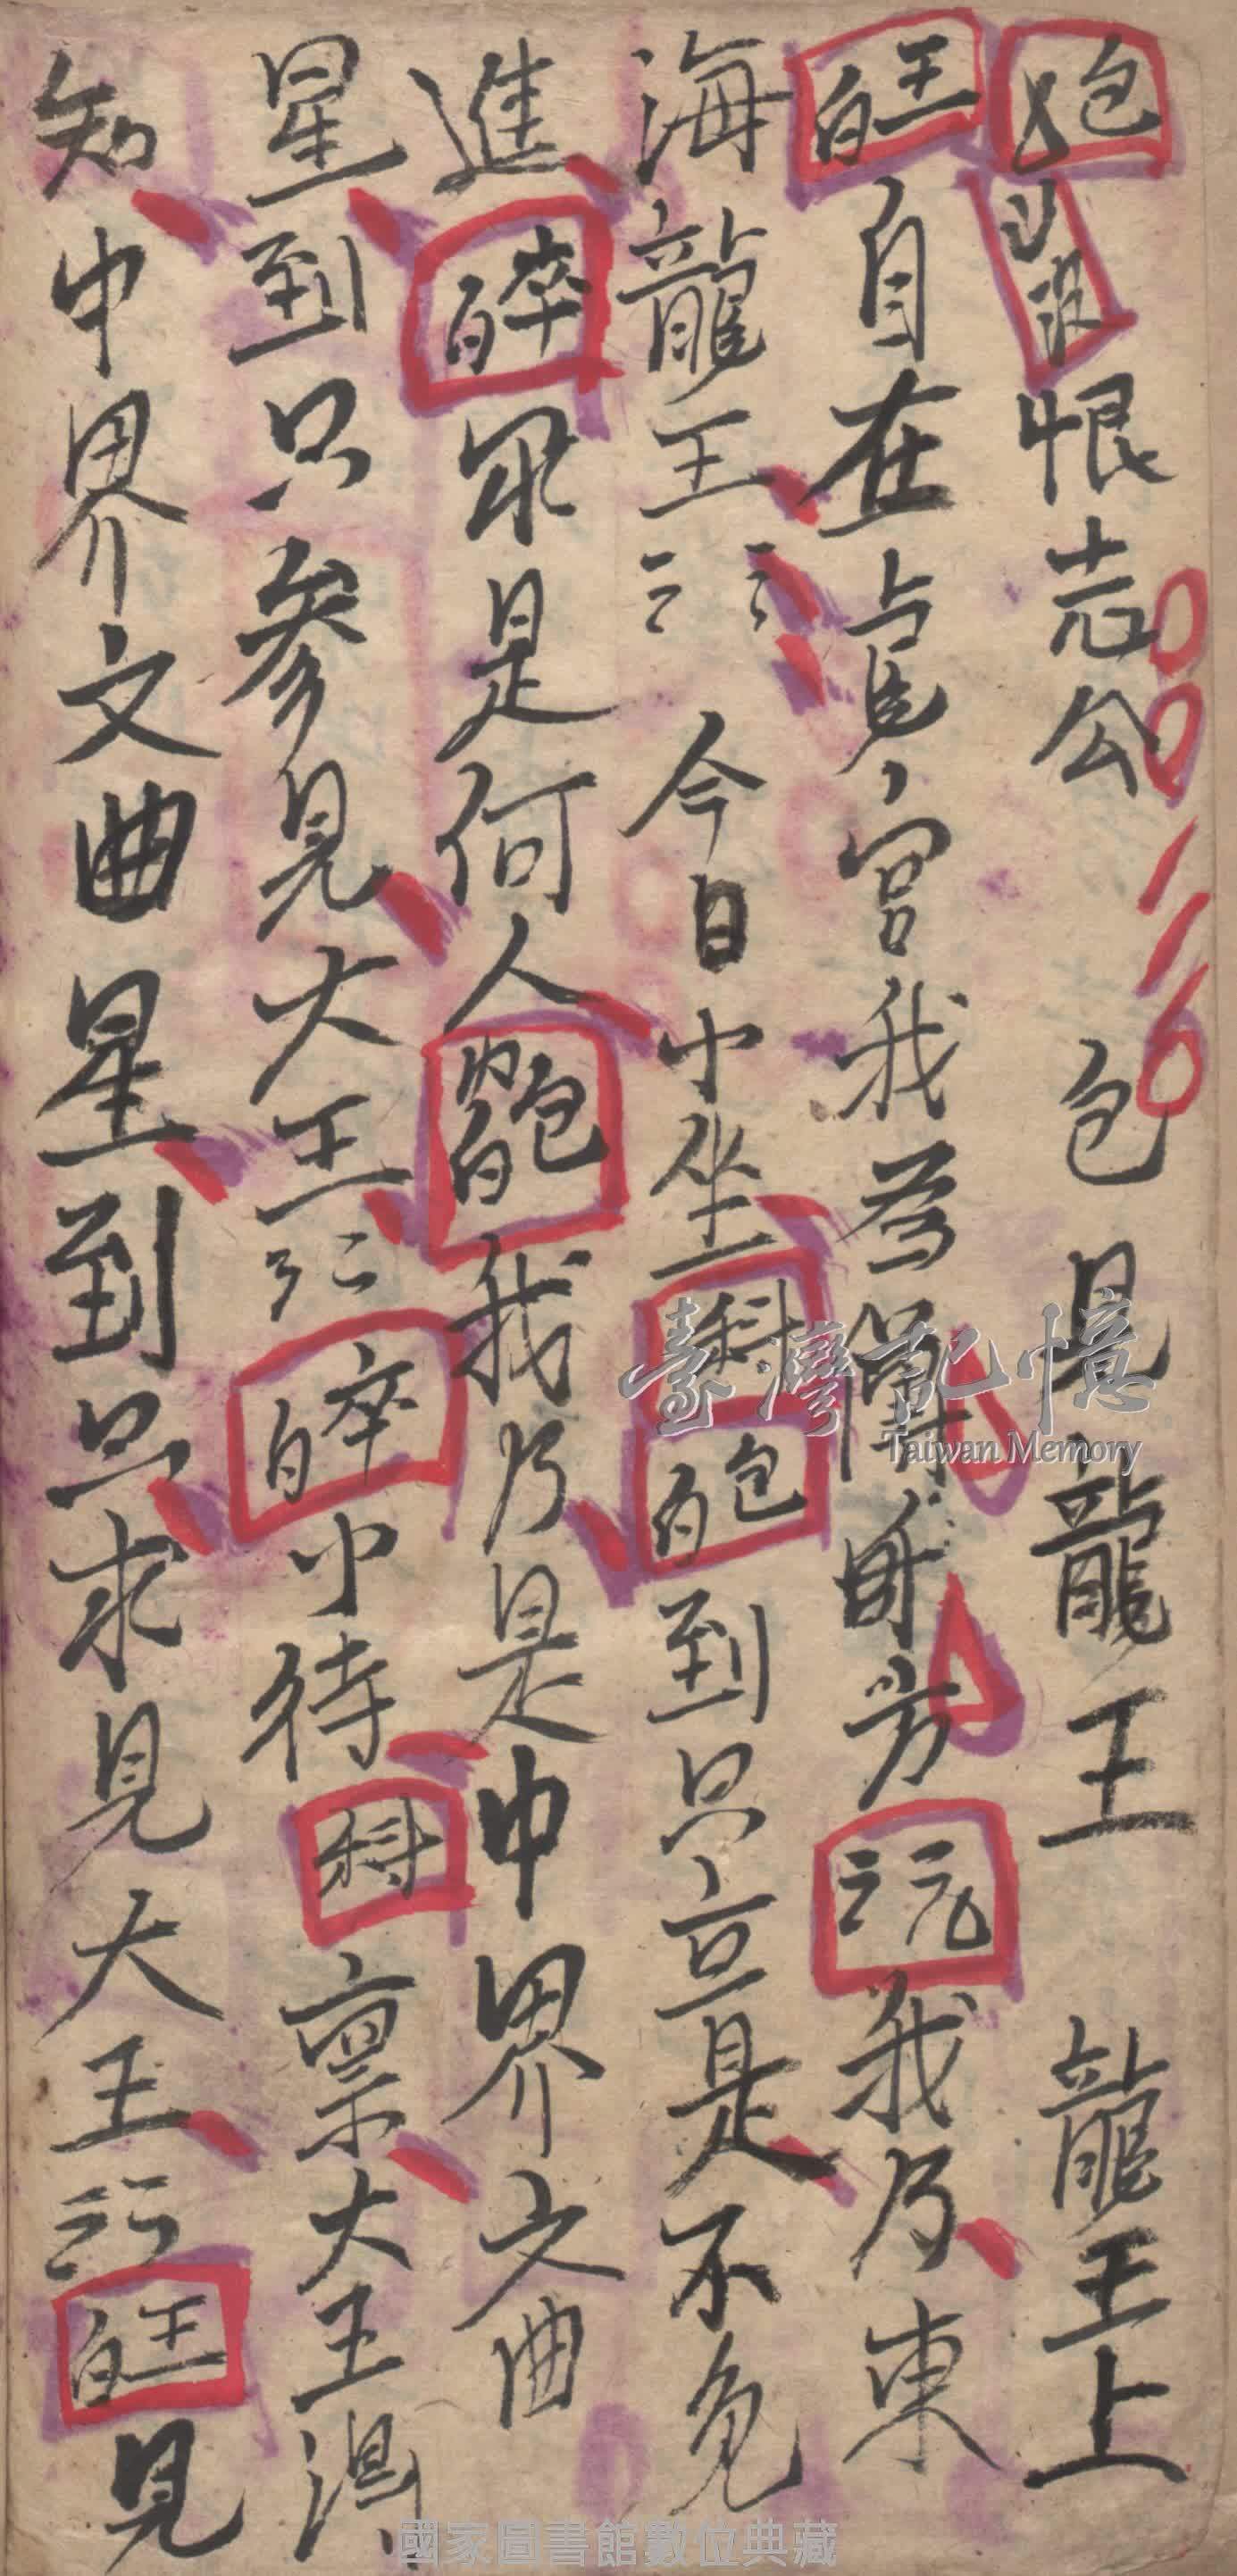 包 恨志公 包見龍王 龍王上
王白 自在 宮我為 身 方 元 我乃東
海龍王 今日小坐 科 包白 到只立是不免
進 卒白 是何人 包白 我乃是中界文曲
星到只參見大王 卒白 小待 科 稟大王得
知中界文曲星到只求見大王 王白 見
臺灣記憶
Taiwan Memory
國家圖書館數位典藏